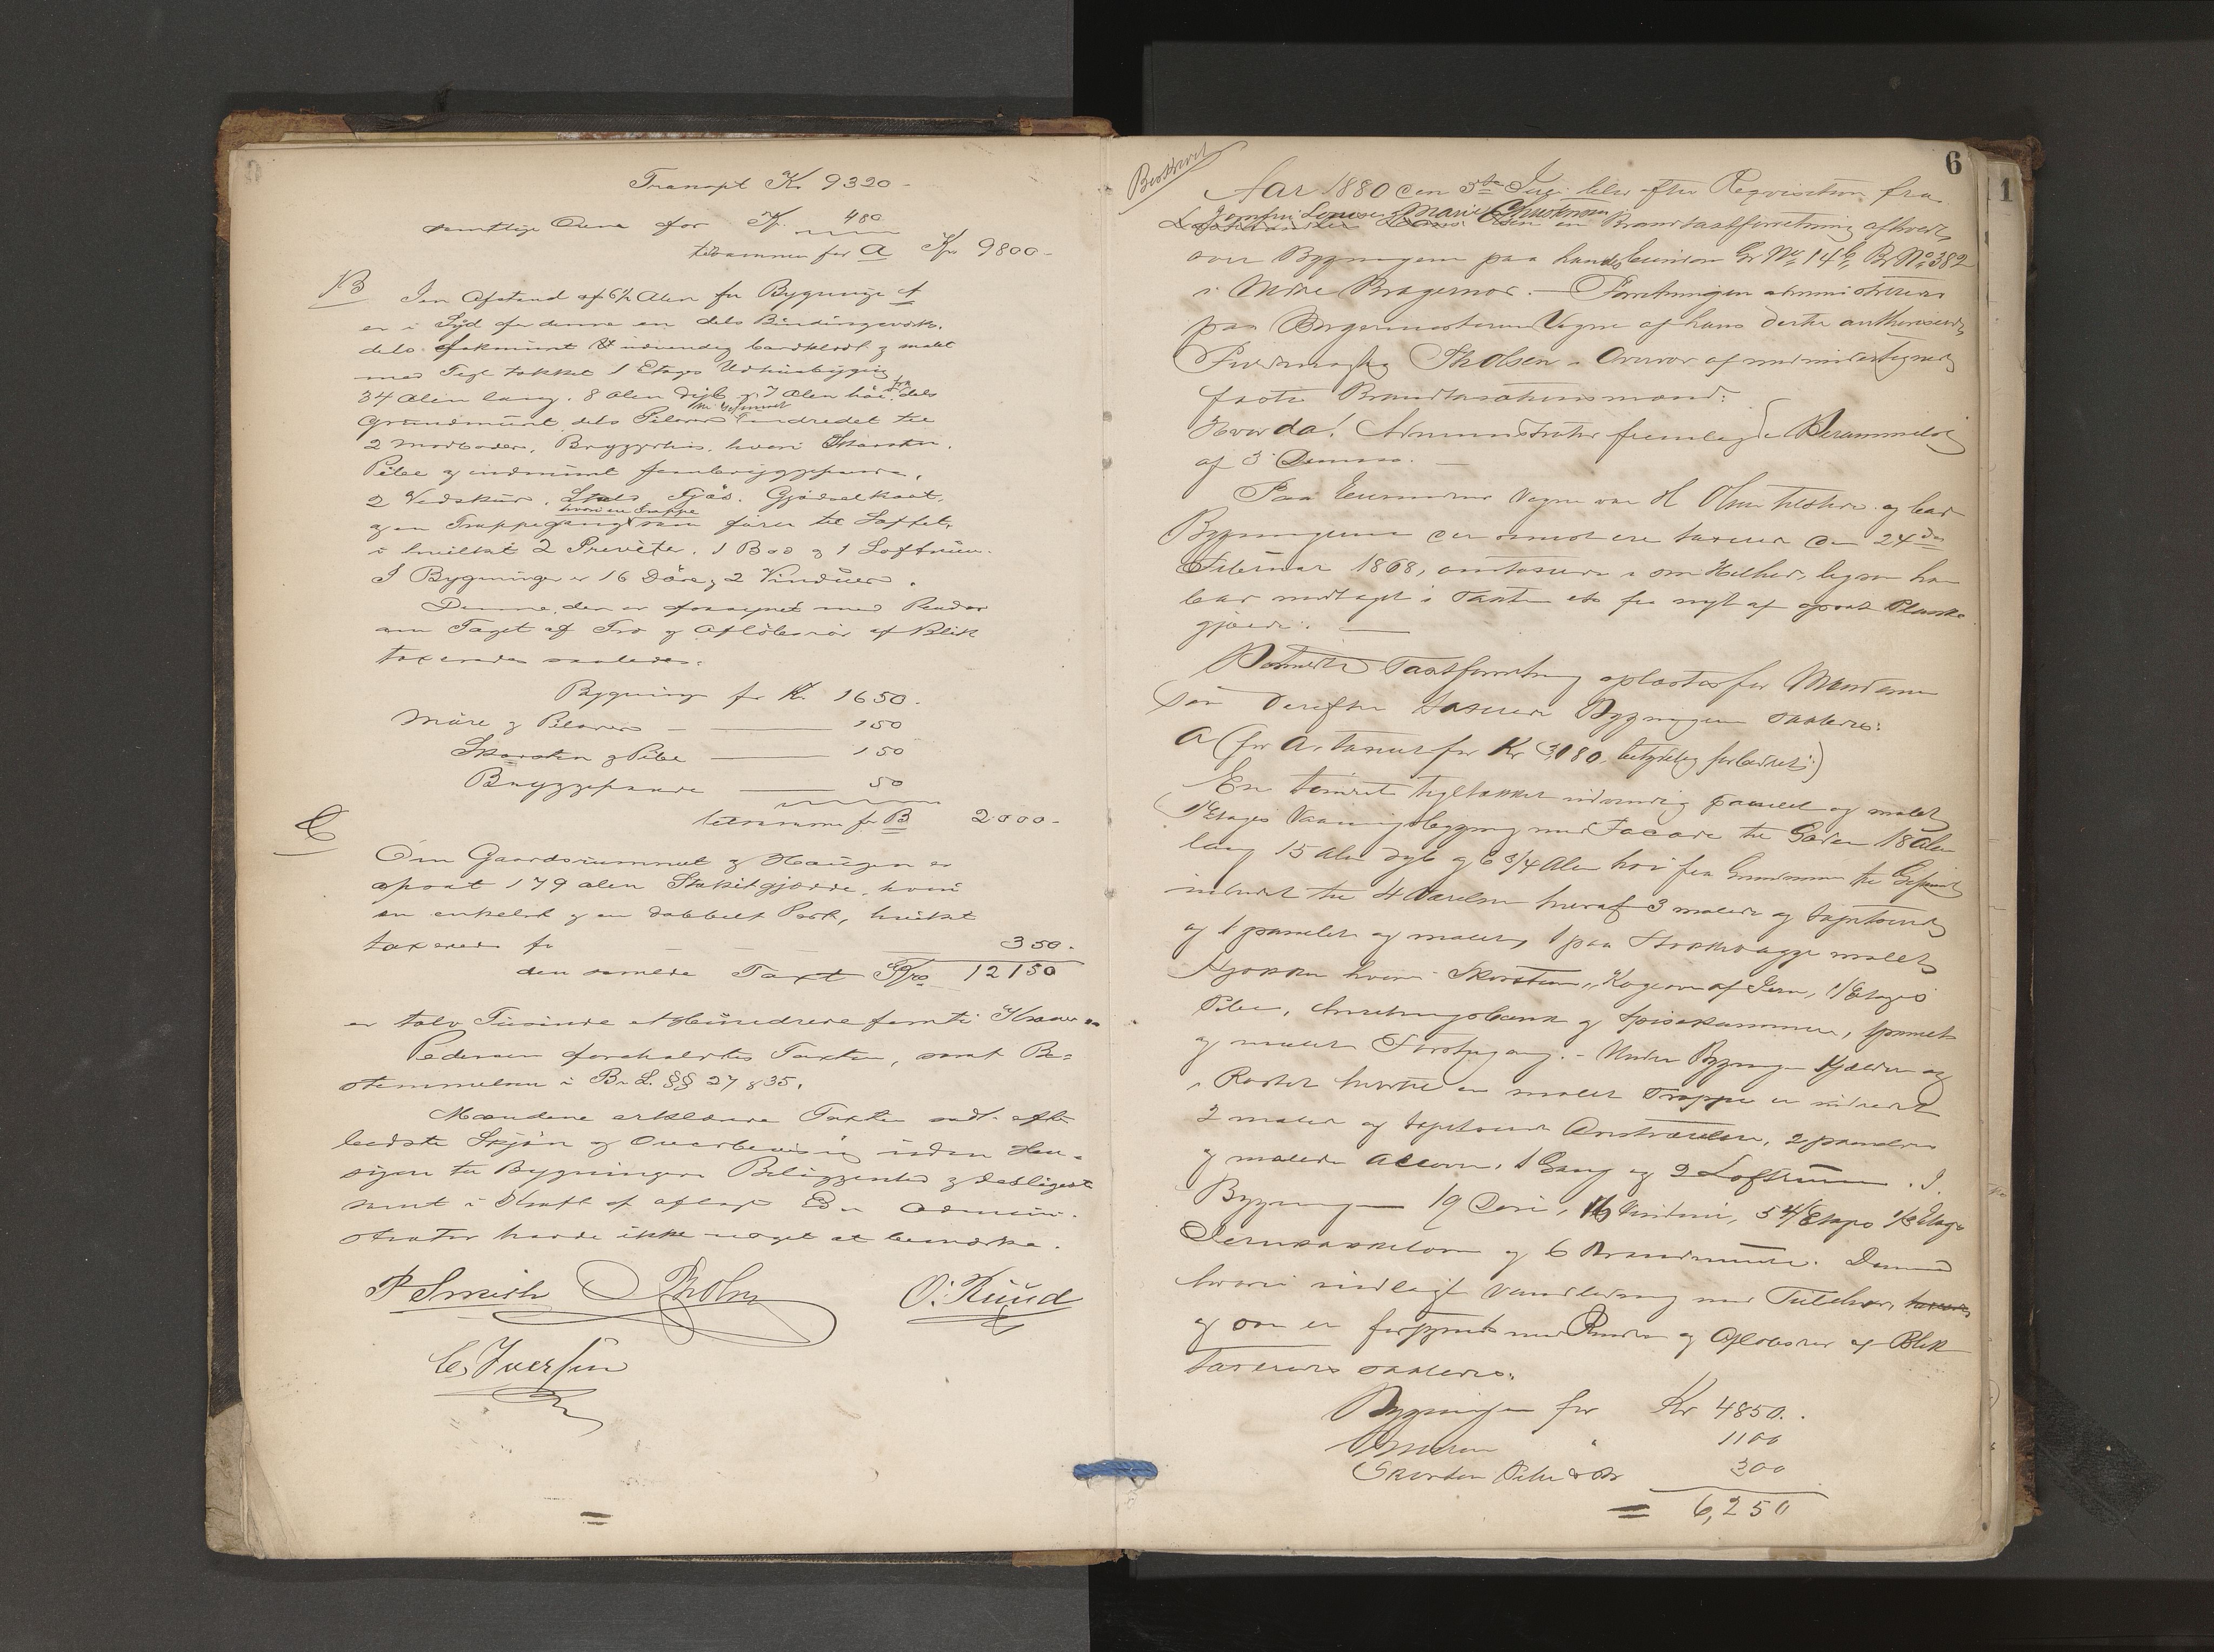 Transpt Kr 9320 -
samtlige Ovne for Kr. 480
tilsammen for A Kr 9800 -
B
I en Afstand af 6½ Alen fra Bygning A
er i Syd for denne en dels Bindingsverks.
dels udvendig bordklædt & malet
med Tegl takket 1 Etages Udhusbygning
34 Alen lang. 8 Alen dyb & 7 Alen höi fra dels
Grundmuur dels Pilarer til Gesimset indredet til
2 Madboder, Bryggerhus, hvori Skorsten,
Pibe & indmuret Bryggepande,
2 Vedskur, Stald, Fjös. Gjödselkast,
og en Trappegang hvori en Trappe som förer til Loftet,
i hvilket 2 Priveter. 1 Bod & 1 Loftrum.
I Bygningen er 16 Döre & 2 Vinduer.
Denne, der er forsynet med Render
om Taget af Træ & Aflöbsrör af Blik
taxeredes saaledes:
Bygningen for Kr. 1650.
Mure & Pilarer — 150
Skorsten & Pibe — 150
Bryggepande — 50
tilsammen for B 2000 -
C
Om Gaardsrummet & Haugen er
opsat 179 alen Stakitgjærde, hvori
en enkelt & en dobbelt Port, hvilket
taxeredes for 350.
den samlede Taxt Kr. 12150
er tolv Tusinde et Hundrede femti Kroner
Pedersen foreholdtes Taxten, samt Be=
stemmelsen i Br. L. §§ 27 & 35.
Mændene erklærede Taxten sat efter
bedste Skjön og Overbevisning uden Hen-
syn til Bygningens Beliggenhed & desligeste
samt i Kraft af aflagt Ed. Admini-
strator havde ikke noget at bemærke.
P Smith Th Olsen O. Ruud
C. Iversen
=
6
1
Beskrevet
Aar 1880 den 5te Juli blev efter Reqvisition fra
Jomfru Louise Marie Christensen en Brandtaxtforretning afholdt
over Bygningerne paa hendes Eiendom Gr No 14 b, Br No 382
i Nedre Bragernes. — Forretningen administreres
paa Borgermesterens Vegne af hans dertil authoriserede
Fuldmægtig Th Olsen i Overvær af nedenundertegnede
faste Brandtaxationsmænd:
Hvorda! Administrator fremlagde Berammelse
af 3 Dennes. —
Paa Eierindens Vegne var H Olsen tilstede og bad
Bygningerne der senest ere taxeret den 24de
Februar 1868, omtaxerede i sin Helhed, ligesom han
bad medtaget i Taxten et for nyt af opsat Planke
gjærde. —
Bemeldte Taxtforretning oplæstes for Mændene
som derefter taxerede Bygningerne saaledes:
A (för A, taxeret for Kr 3,180, betydelig forbedret:)
En tömret tegltækket udvendig panelet og malet
1 Etages Vaaningsbygning med Facade til Gaden 18 Alen
lang 15 Alen dyb og 6 3/4 Alen höi fra Grundmuren til Gesimset
indredet til 4 Værelser hvoraf 3 malede og tapetserede
og 1 panelet og malet, 1 paa Stokkevægge malet
Kjökken hvori Skorsten, Kogeovn af Jern, 1 Etages
Pibe, Anretningsbænk og Spisekammer, 1 panelet
og malet Forstugang. - Under Bygningen Kjælder og
i Röstet hvortil en malet Trappe er indredet
2 malede og tapetserede Qvistværelser, 2 panelede
& malede Alcover, 1 Gang og 2 Loftsrum. I
Bygningen 19 Döre, 16 Vinduer, 5 4/Etages 1/3 Etages
Jernkakkelovn og 6 Brandmure. Denne
hvori indlagt Vandledning med Tilbehör,
og som er forsynet med Render og Aflöbsrör af Blik
taxeres saaledes:
Bygningen for Kr 4850.
Murene " 1100
Skorsten Pibe 300
= 6,250